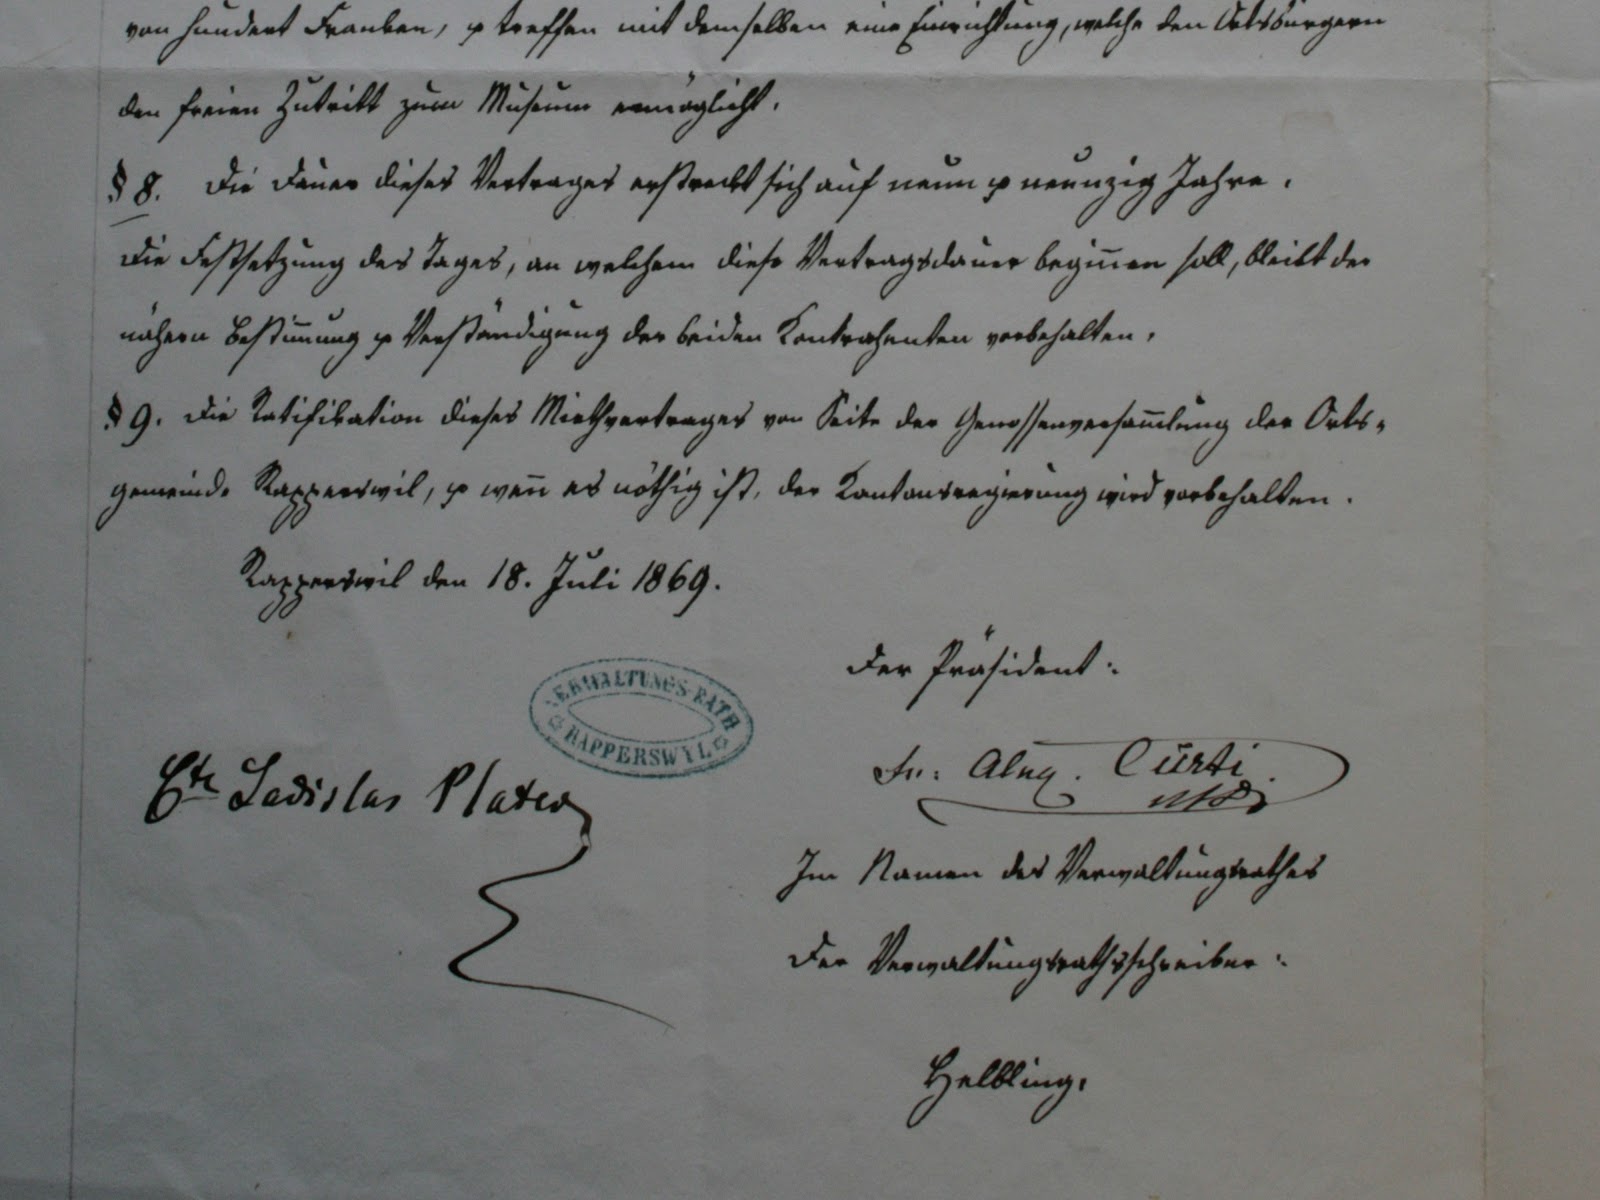 von hundert Franken, & treffen mit demselben eine Einrichtung, welche den Ortsbürgern
den freien Zutritt zum Museum ermöglicht.
§ 8. Die Dauer dieses Vertrages erstreckt sich auf neun & neunzig Jahre.
Die Festsetzung des Tages, an welchem diese Vertragsdauer begiñen soll, bleibt der
nähern Bestim̅ung & Verständigung der beiden Kontrahenten vorbehalten.
§ 9. Die Ratifikation dieses Miethvertrages von Seite der Genossenversam̅lung der Orts-
gemeinde Rapperswil, & weñ es nöthig ist, der Kantonsregierung wird vorbehalten.
Rapperswil den 18. Juli 1869.
Der Präsident:
VERWALTUNGS-RATH
RAPPERSWYL
Cte Ladislas Plater
Curti
Im Namen des Verwaltungsrathes
Der Verwaltungsrathsschreiber:
Helbling.